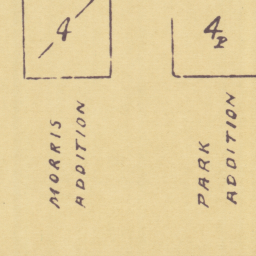 4
4P
MORRIS
ADDITION
PARK
ADDITION